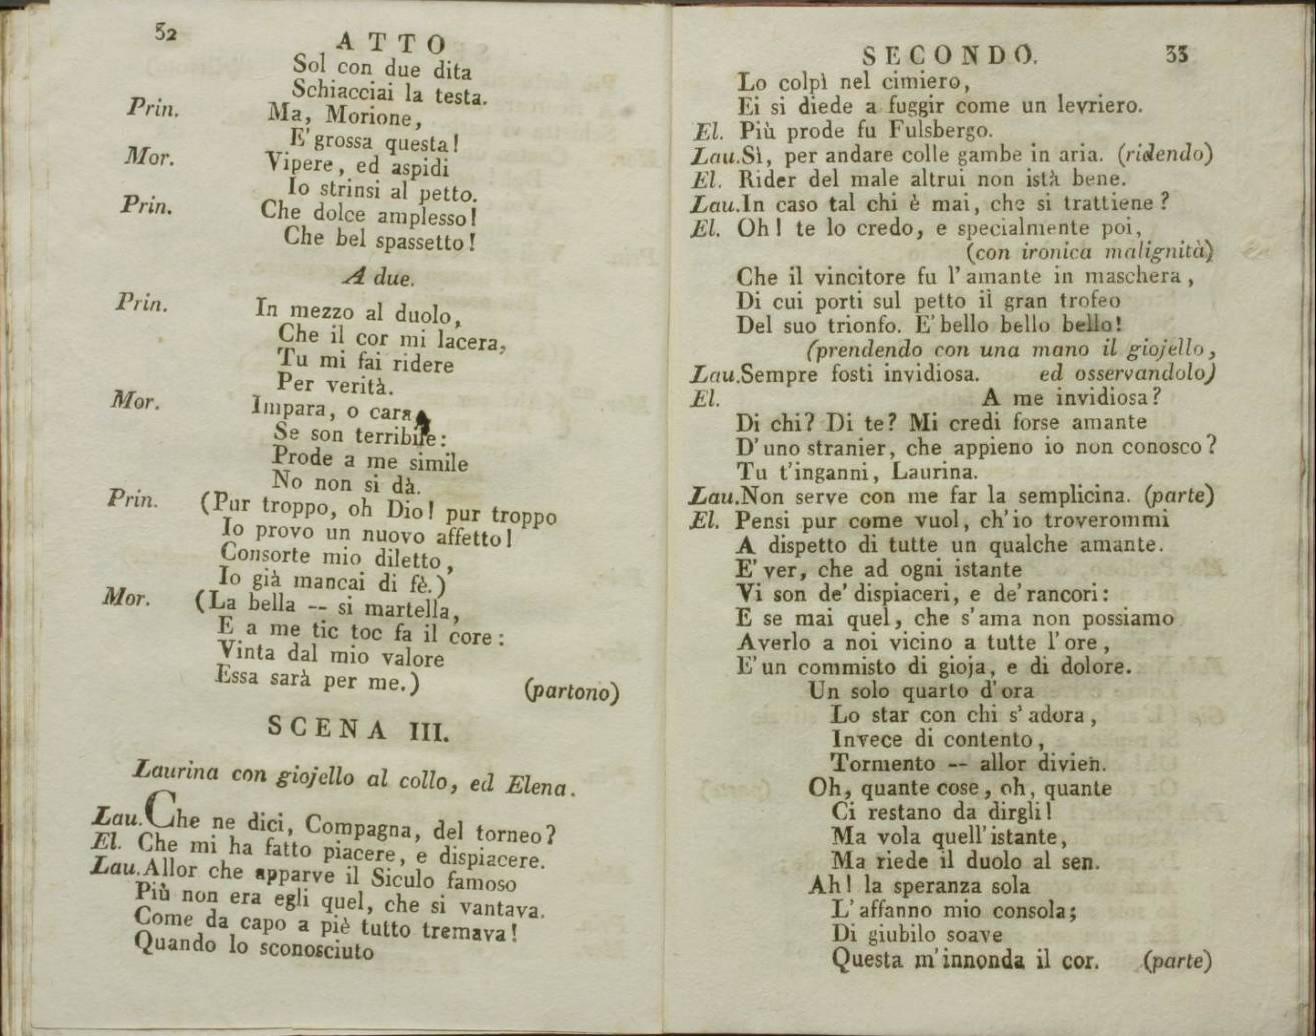 32
ATTO
Sol con due dita
Schiacciai la testa.
Prin. Ma, Morione,
E' grossa questa!
Mor. Vipere, ed aspidi
Io strinsi al petto.
Prin. Che dolce amplesso!
Che bel spassetto!
A due.
Prin. In mezzo al duolo,
Che il cor mi lacera,
Tu mi fai ridere
Per verità.
Mor. Impara, o cara
Se son terribile:
Prode a me simile
No non si dà.
Prin. (Pur troppo, oh Dio! pur troppo
Io provo un nuovo affetto!
Consorte mio diletto,
Io già mancai di fè.)
Mor. (La bella -- si martella,
E a me tic toc fa il core:
Vinta dal mio valore
Essa sarà per me.) (partono)
SCENA III.
Laurina con giojello al collo, ed Elena.
Lau. Che ne dici, Compagna, del torneo?
El. Che mi ha fatto piacere, e dispiacere.
Lau. Allor che apparve il Siculo famoso
Più non era egli quel, che si vantava.
Come da capo a piè tutto tremava!
Quando lo sconosciuto
SECONDO. 33
Lo colpì nel cimiero,
Ei si diede a fuggir come un levriero.
El. Più prode fu Fulsbergo.
Lau. Sì, per andare colle gambe in aria. (ridendo)
El. Rider del male altrui non istà bene.
Lau. In caso tal chi è mai, che si trattiene?
El. Oh! te lo credo, e specialmente poi,
(con ironica malignità)
Che il vincitore fu l'amante in maschera,
Di cui porti sul petto il gran trofeo
Del suo trionfo. E' bello bello bello!
(prendendo con una mano il giojello,
Lau. Sempre fosti invidiosa. ed osservandolo)
El. A me invidiosa?
Di chi? Di te? Mi credi forse amante
D'uno stranier, che appieno io non conosco?
Tu t'inganni, Laurina.
Lau. Non serve con me far la semplicina. (parte)
El. Pensi pur come vuol, ch'io troverommi
A dispetto di tutte un qualche amante.
E' ver, che ad ogni istante
Vi son de' dispiaceri, e de' rancori:
E se mai quel, che s'ama non possiamo
Averlo a noi vicino a tutte l'ore,
E' un commisto di gioja, e di dolore.
Un solo quarto d'ora
Lo star con chi s'adora,
Invece di contento,
Tormento -- allor divien.
Oh, quante cose, oh, quante
Ci restano da dirgli!
Ma vola quell'istante,
Ma riede il duolo al sen.
Ah! la speranza sola
L'affanno mio consola;
Di giubilo soave
Questa m'innonda il cor. (parte)